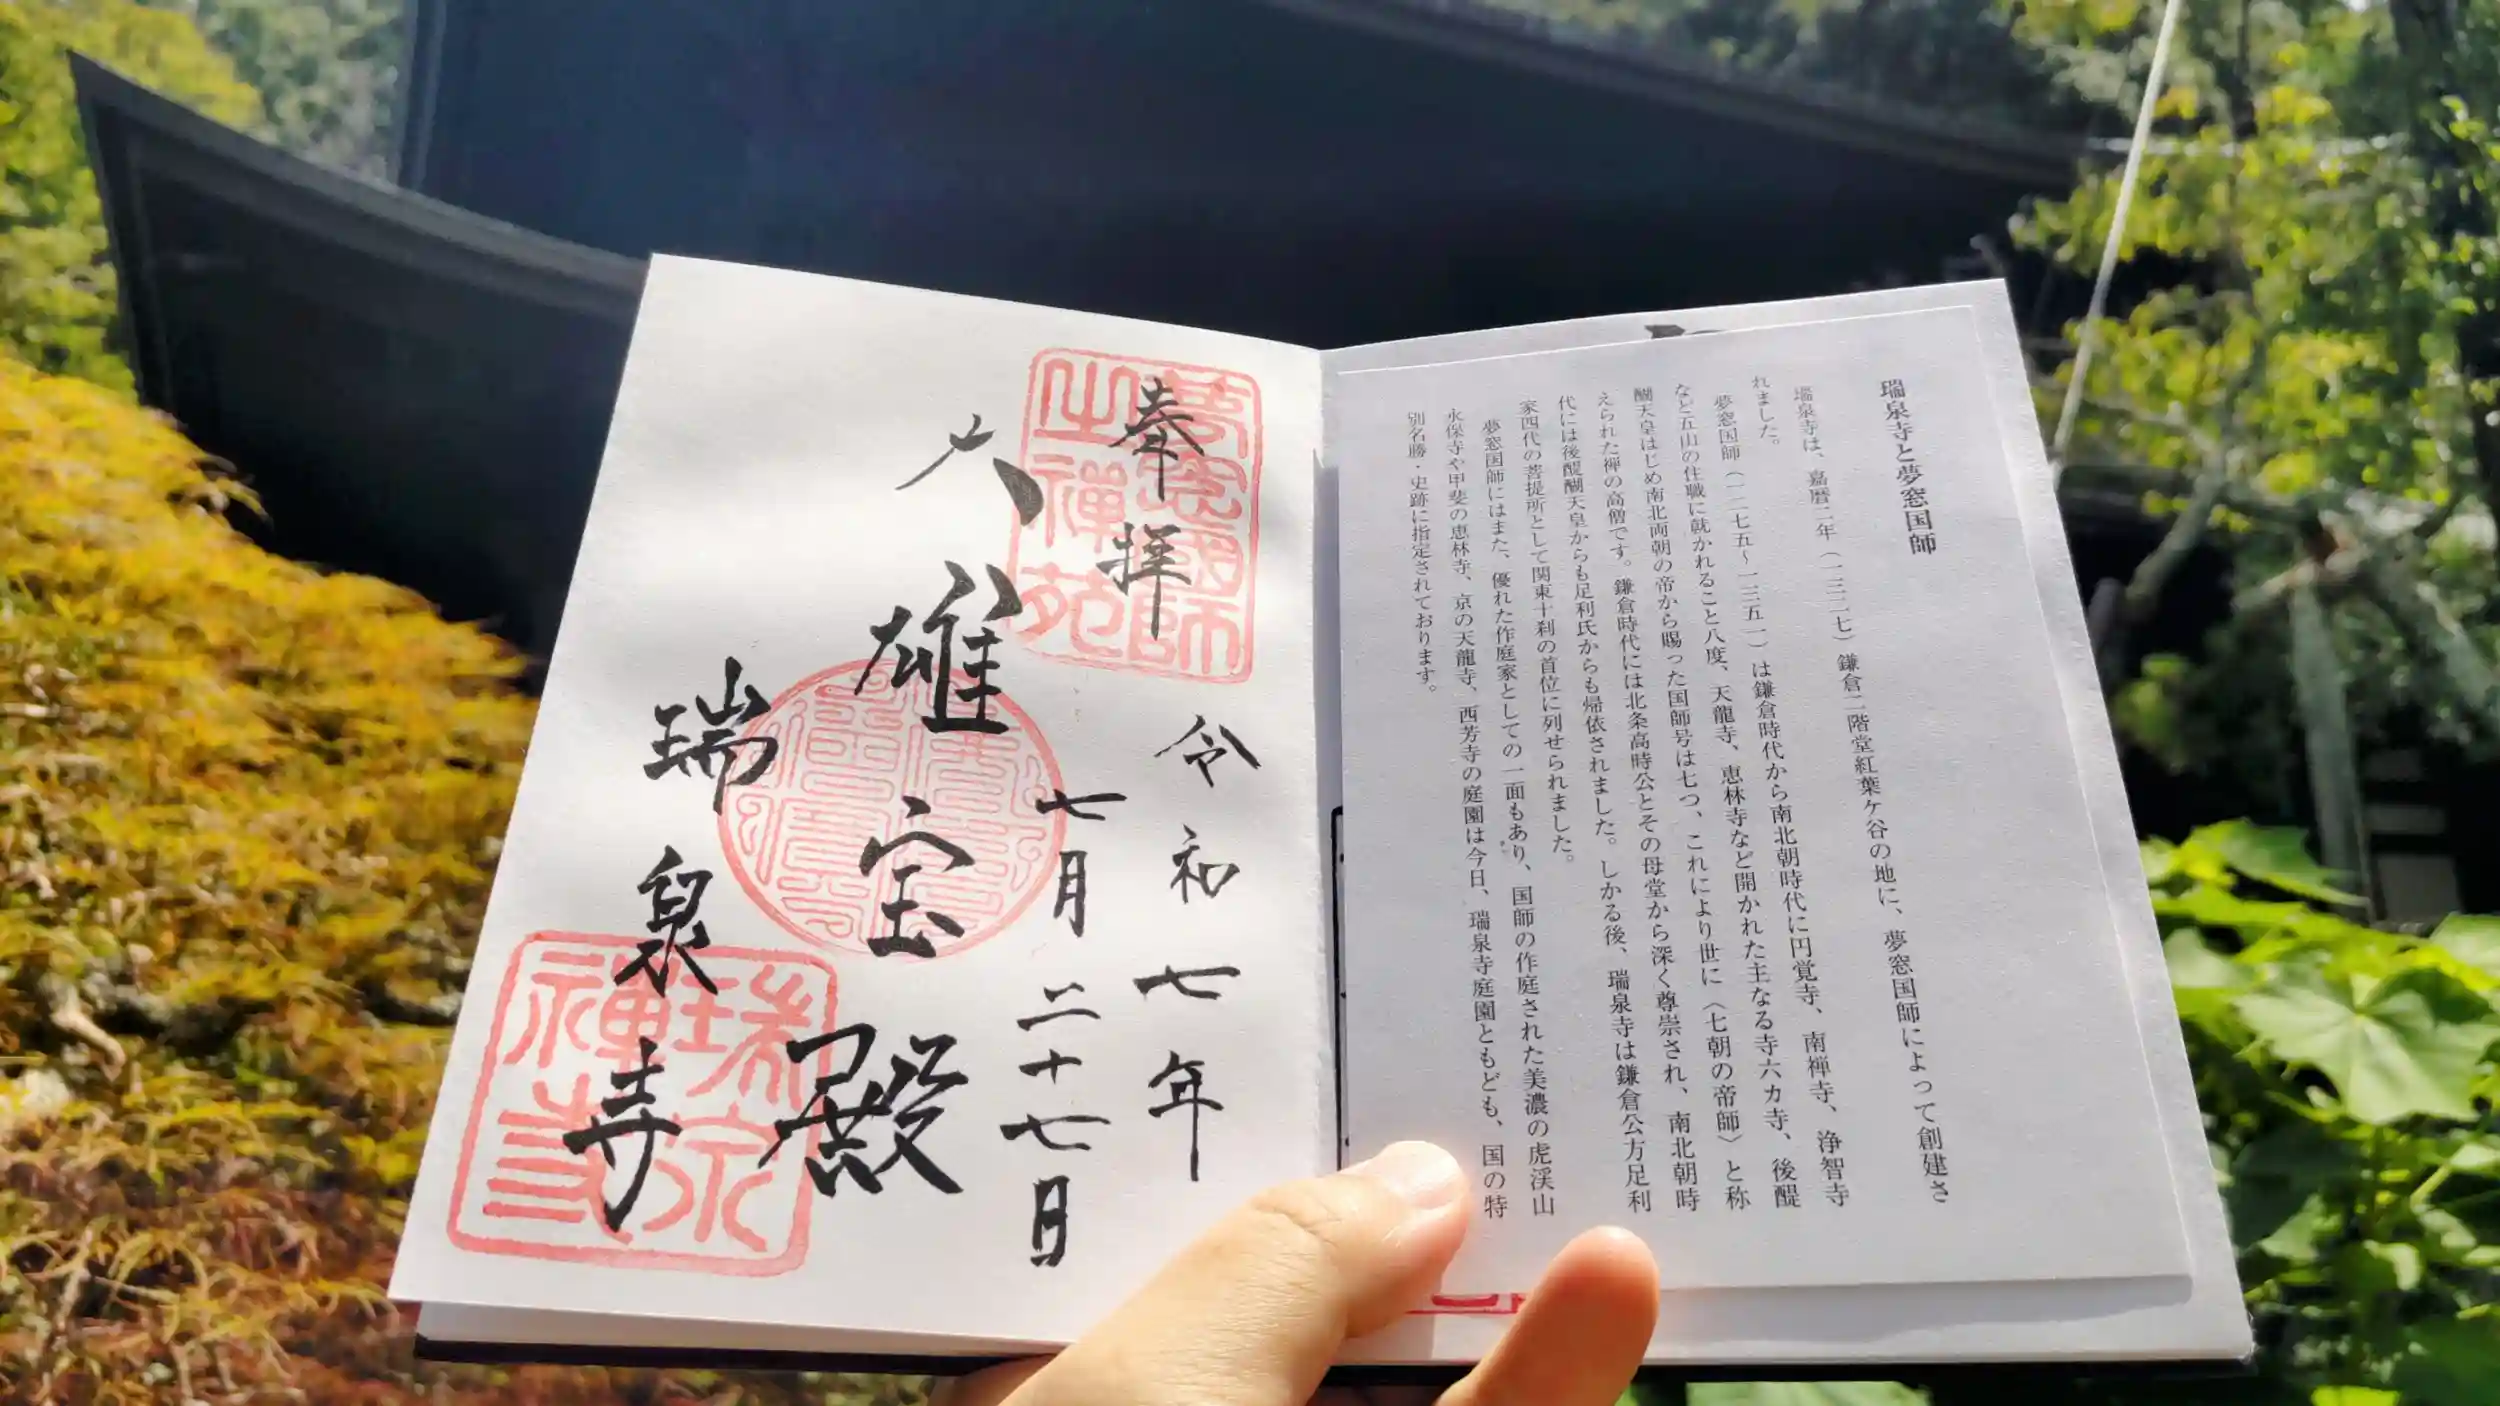 瑞泉寺と夢窓国師
瑞泉寺は、嘉暦二年（一三二七）鎌倉二階堂紅葉ヶ谷の地に、夢窓国師によって創建さ
れました。
夢窓国師（一二七五～一三五一）は鎌倉時代から南北朝時代に円覚寺、南禅寺、浄智寺
など五山の住職に就かれること八度、天龍寺、恵林寺など開かれた主なる寺六カ寺、後醍
醐天皇はじめ南北両朝の帝から賜った国師号は七つ、これにより世に〈七朝の帝師〉と称
えられた禅の高僧です。鎌倉時代には北条高時公とその母堂から深く尊崇され、南北朝時
代には後醍醐天皇からも足利氏からも帰依されました。しかる後、瑞泉寺は鎌倉公方足利
家四代の菩提所として関東十刹の首位に列せられました。
夢窓国師にはまた、優れた作庭家としての一面もあり、国師の作庭された美濃の虎渓山
永保寺や甲斐の恵林寺、京の天龍寺、西芳寺の庭園は今日、瑞泉寺庭園ともども、国の特
別名勝・史跡に指定されております。
奉拝
令和七年
七月二十七日
大雄宝殿
瑞泉寺
夢窓國師
禅苑
瑞泉
禅寺